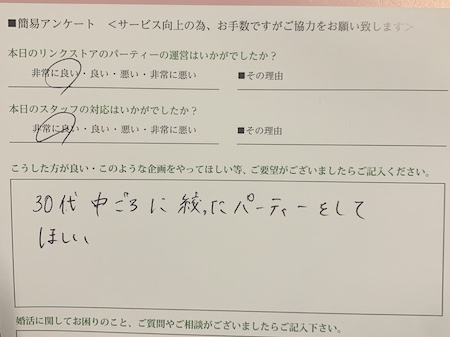 ■簡易アンケート　＜サービス向上の為、お手数ですがご協力をお願い致します＞
本日のリンクストアのパーティーの運営はいかがでしたか？
非常に良い・良い・悪い・非常に悪い　■その理由
本日のスタッフの対応はいかがでしたか？
非常に良い・良い・悪い・非常に悪い　■その理由
こうした方が良い・このような企画をやってほしい等、ご要望がございましたらご記入ください。
30代中ごろに絞ったパーティーをして
ほしい
婚活に関してお困りのこと、ご質問やご相談がございましたらご記入下さい。